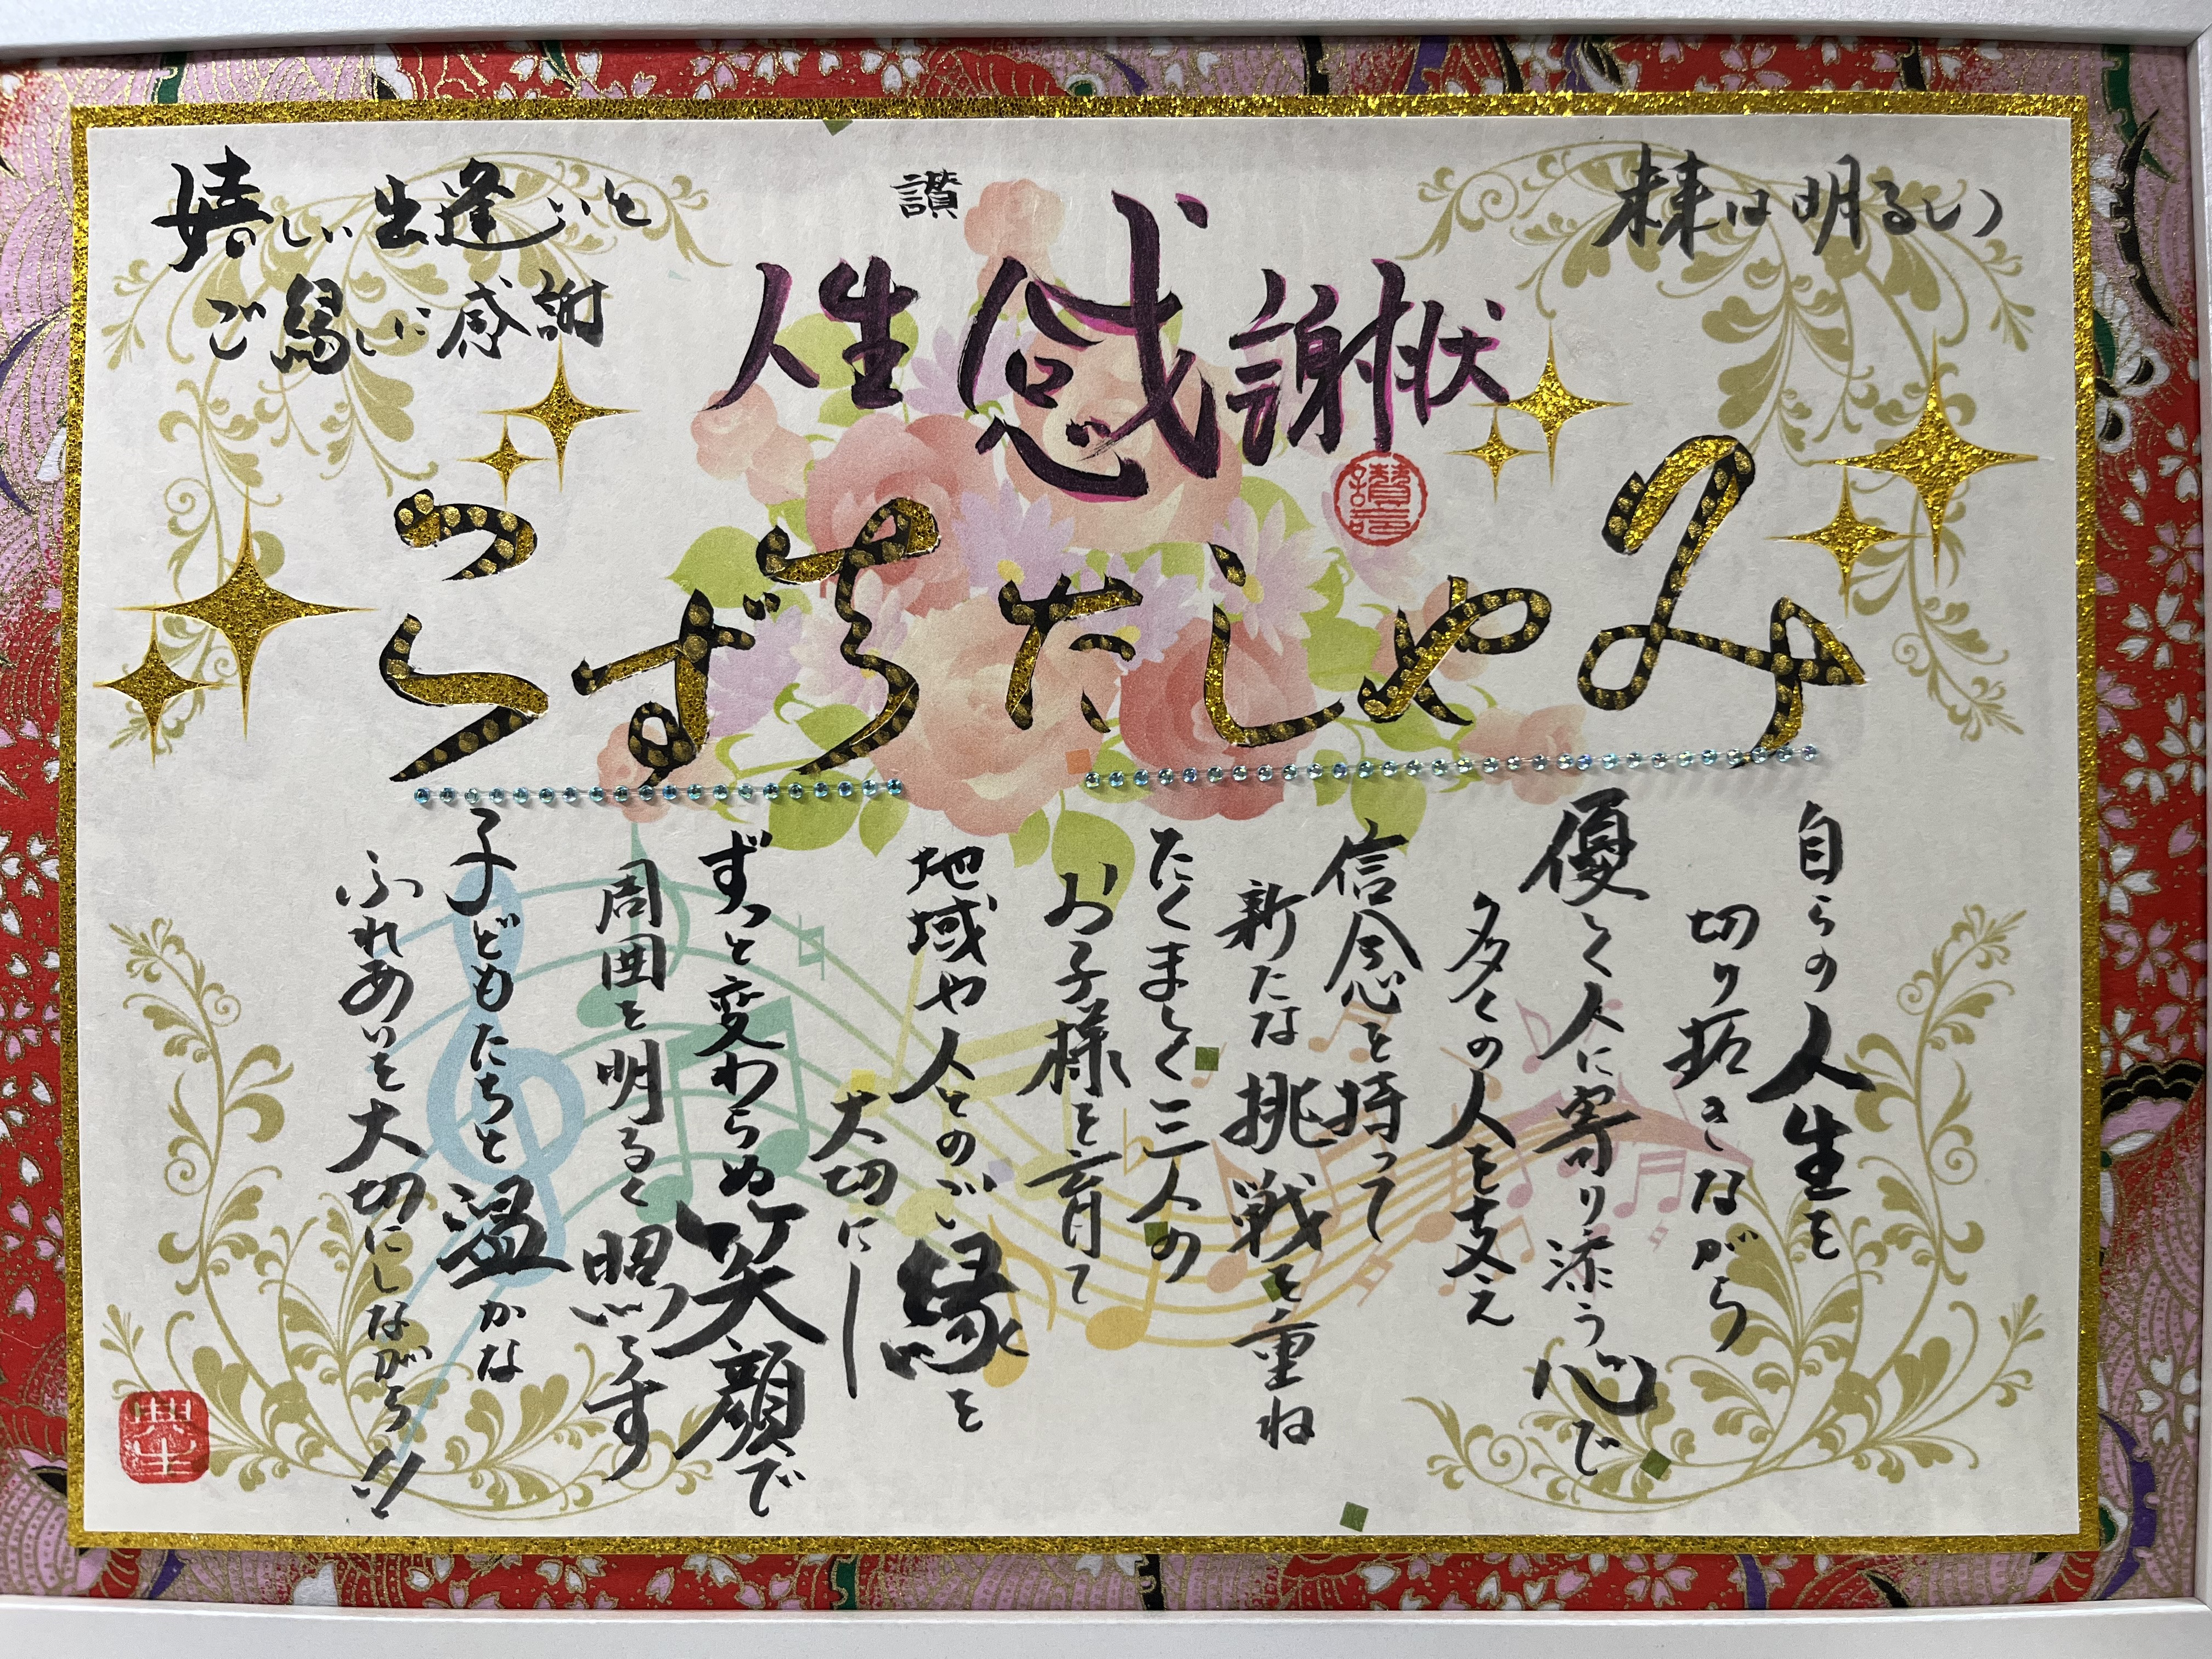 未来は明るい
讃
人生感謝状
嬉しい出逢いと
ご縁に感謝
みやしたちずこ
自らの人生を
切り拓きながら
優しく人に寄り添う心で
多くの人を支え
信念を持って
新たな挑戦を重ね
たくましく三人の
お子様を育て
地域や人とのご縁を
大切にし
ずっと変わらぬ笑顔で
周囲を明るく照らす
子どもたちと温かな
ふれあいを大切にしながら!!